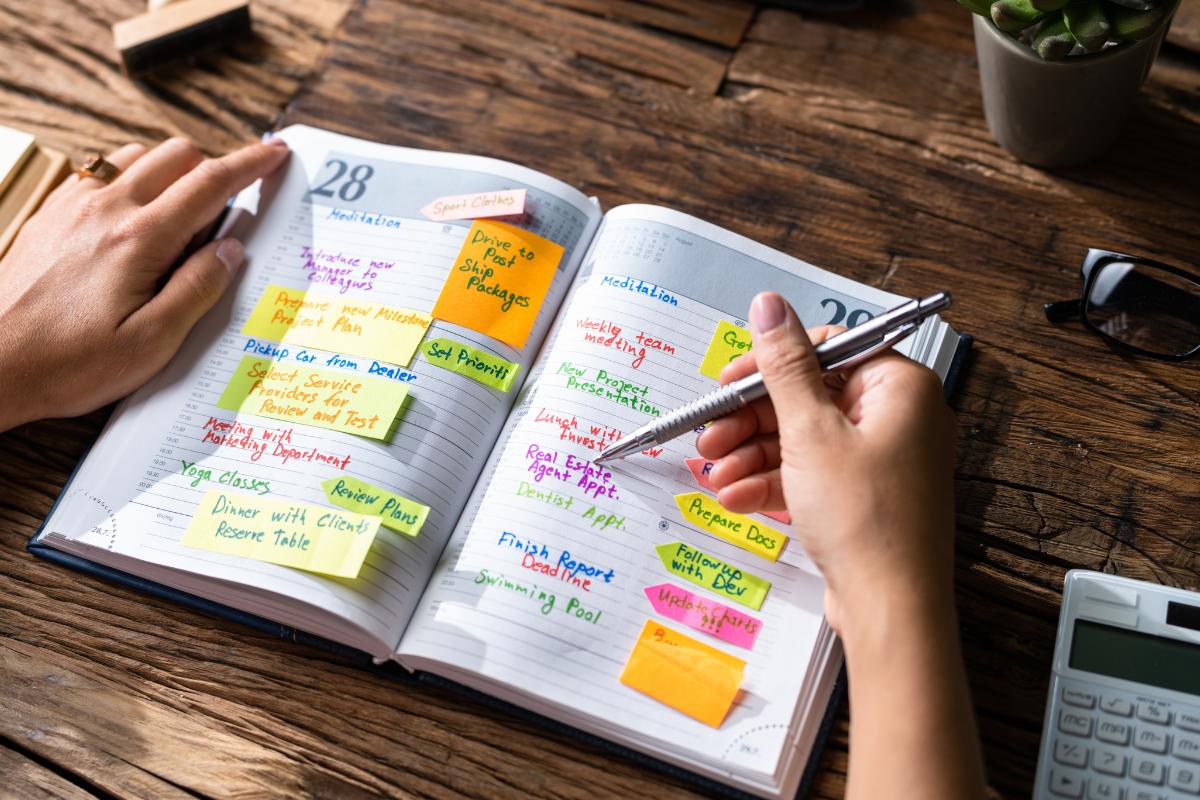 28
Sport Clothes
Meditation
Drive to
Post
Ship
Packages
Introduce new
Manager to
Colleagues
Prepare new Milestone
Project Plan
Set Prioriti
Pickup Car from Dealer
Select Service
Providers for
Review and Test
Meeting with
Marketing Department
Yoga Classes
Review Plans
Dinner with Clients
Reserve Table
28.7.
August
29
Meditation
Weekly team
meeting
Get
New Project
Presentation
Lunch with
Real Estate
Agent Appt.
Dentist Appt.
Prepare Docs
Finish Report
Deadline
Follow up
with Dev
Swimming Pool
Update Charts
!!!
MC
MR
M-
M+
7
8
9